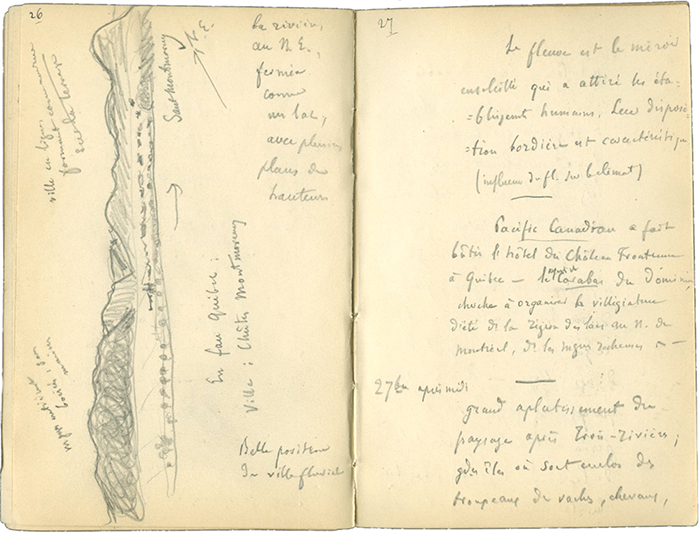 26
La rivière
au N.E.,
fermée
comme
un lac,
avec plusieurs
plans de
hauteurs
N.E.
Saut Montmorency
ville en lignes
formant comme une
sur la terrasse
En face Québec :
Ville : Chûtes Montmorency
Belle position
de ville fluviale
27
Le fleuve est le miroir
qui a attiré les éta-
=blissements humains. Leur disposi-
=tion bordière est caractéristique
(influence du fl. sur le climat)
Pacific Canadian a fait
bâtir l'hôtel du Château Frontenac
à Québec — le du dominion,
cherche à organiser la villégiature
d'été de la région des lacs au N. de
Montréal, de la région
27bre après midi
grand aplatissement du
paysage après Trois-Rivières;
gdes îles où sont enclos des
troupeaux de vaches, chevaux,